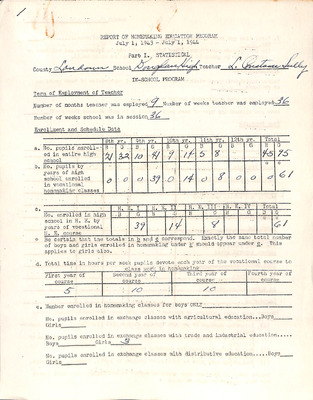 1
REPORT OF HOMEMAKING EDUCATION PROGRAM
July 1, 1943 - July 1, 1944
Part I. STATISTICAL
County Loudoun School Douglass High Teacher L.
IN-SCHOOL PROGRAM
Term of Employment of Teacher
Number of months teacher was employed 9 Number of weeks teacher was employed 36
Number of weeks school was in session 36
Enrollment and Schedule Data
8th yr. 9th yr. 10th yr. 11th yr. 12th yr. Total
B G B G B G B G B G B G
a. No. pupils enrolled in entire high school 21 32 10 41 9 14 5 8 45 75
b. No. pupils by years of high school enrolled in vocational homemaking classes 0 0 0 39 0 14 0 8 0 0 61
c. H. E. I H. E. II H. E. III H. E. IV Total
B G B G B G B G B G
No. enrolled in high school in H. E. by years of vocational H. E. course 39 14 8 61
Be certain that the totals in b and c correspond. Exactly the same total number
of boys and girls enrolled in homemaking under b should appear under c. This
applies to girls also.
d. Total time in hours per week pupils devote each year of the vocational course to
class work in homemaking
First year of course Second year of course Third year of course Fourth year of course
5 10 10
e. Number enrolled in homemaking classes for boys ONLY
No. pupils enrolled in exchange classes with agricultural education...Boys
Girls
No. pupils enrolled in exchange classes with trade and industrial education.....
Boys Girls 3
No. pupils enrolled in exchange classes with distributive education.....Boys
Girls